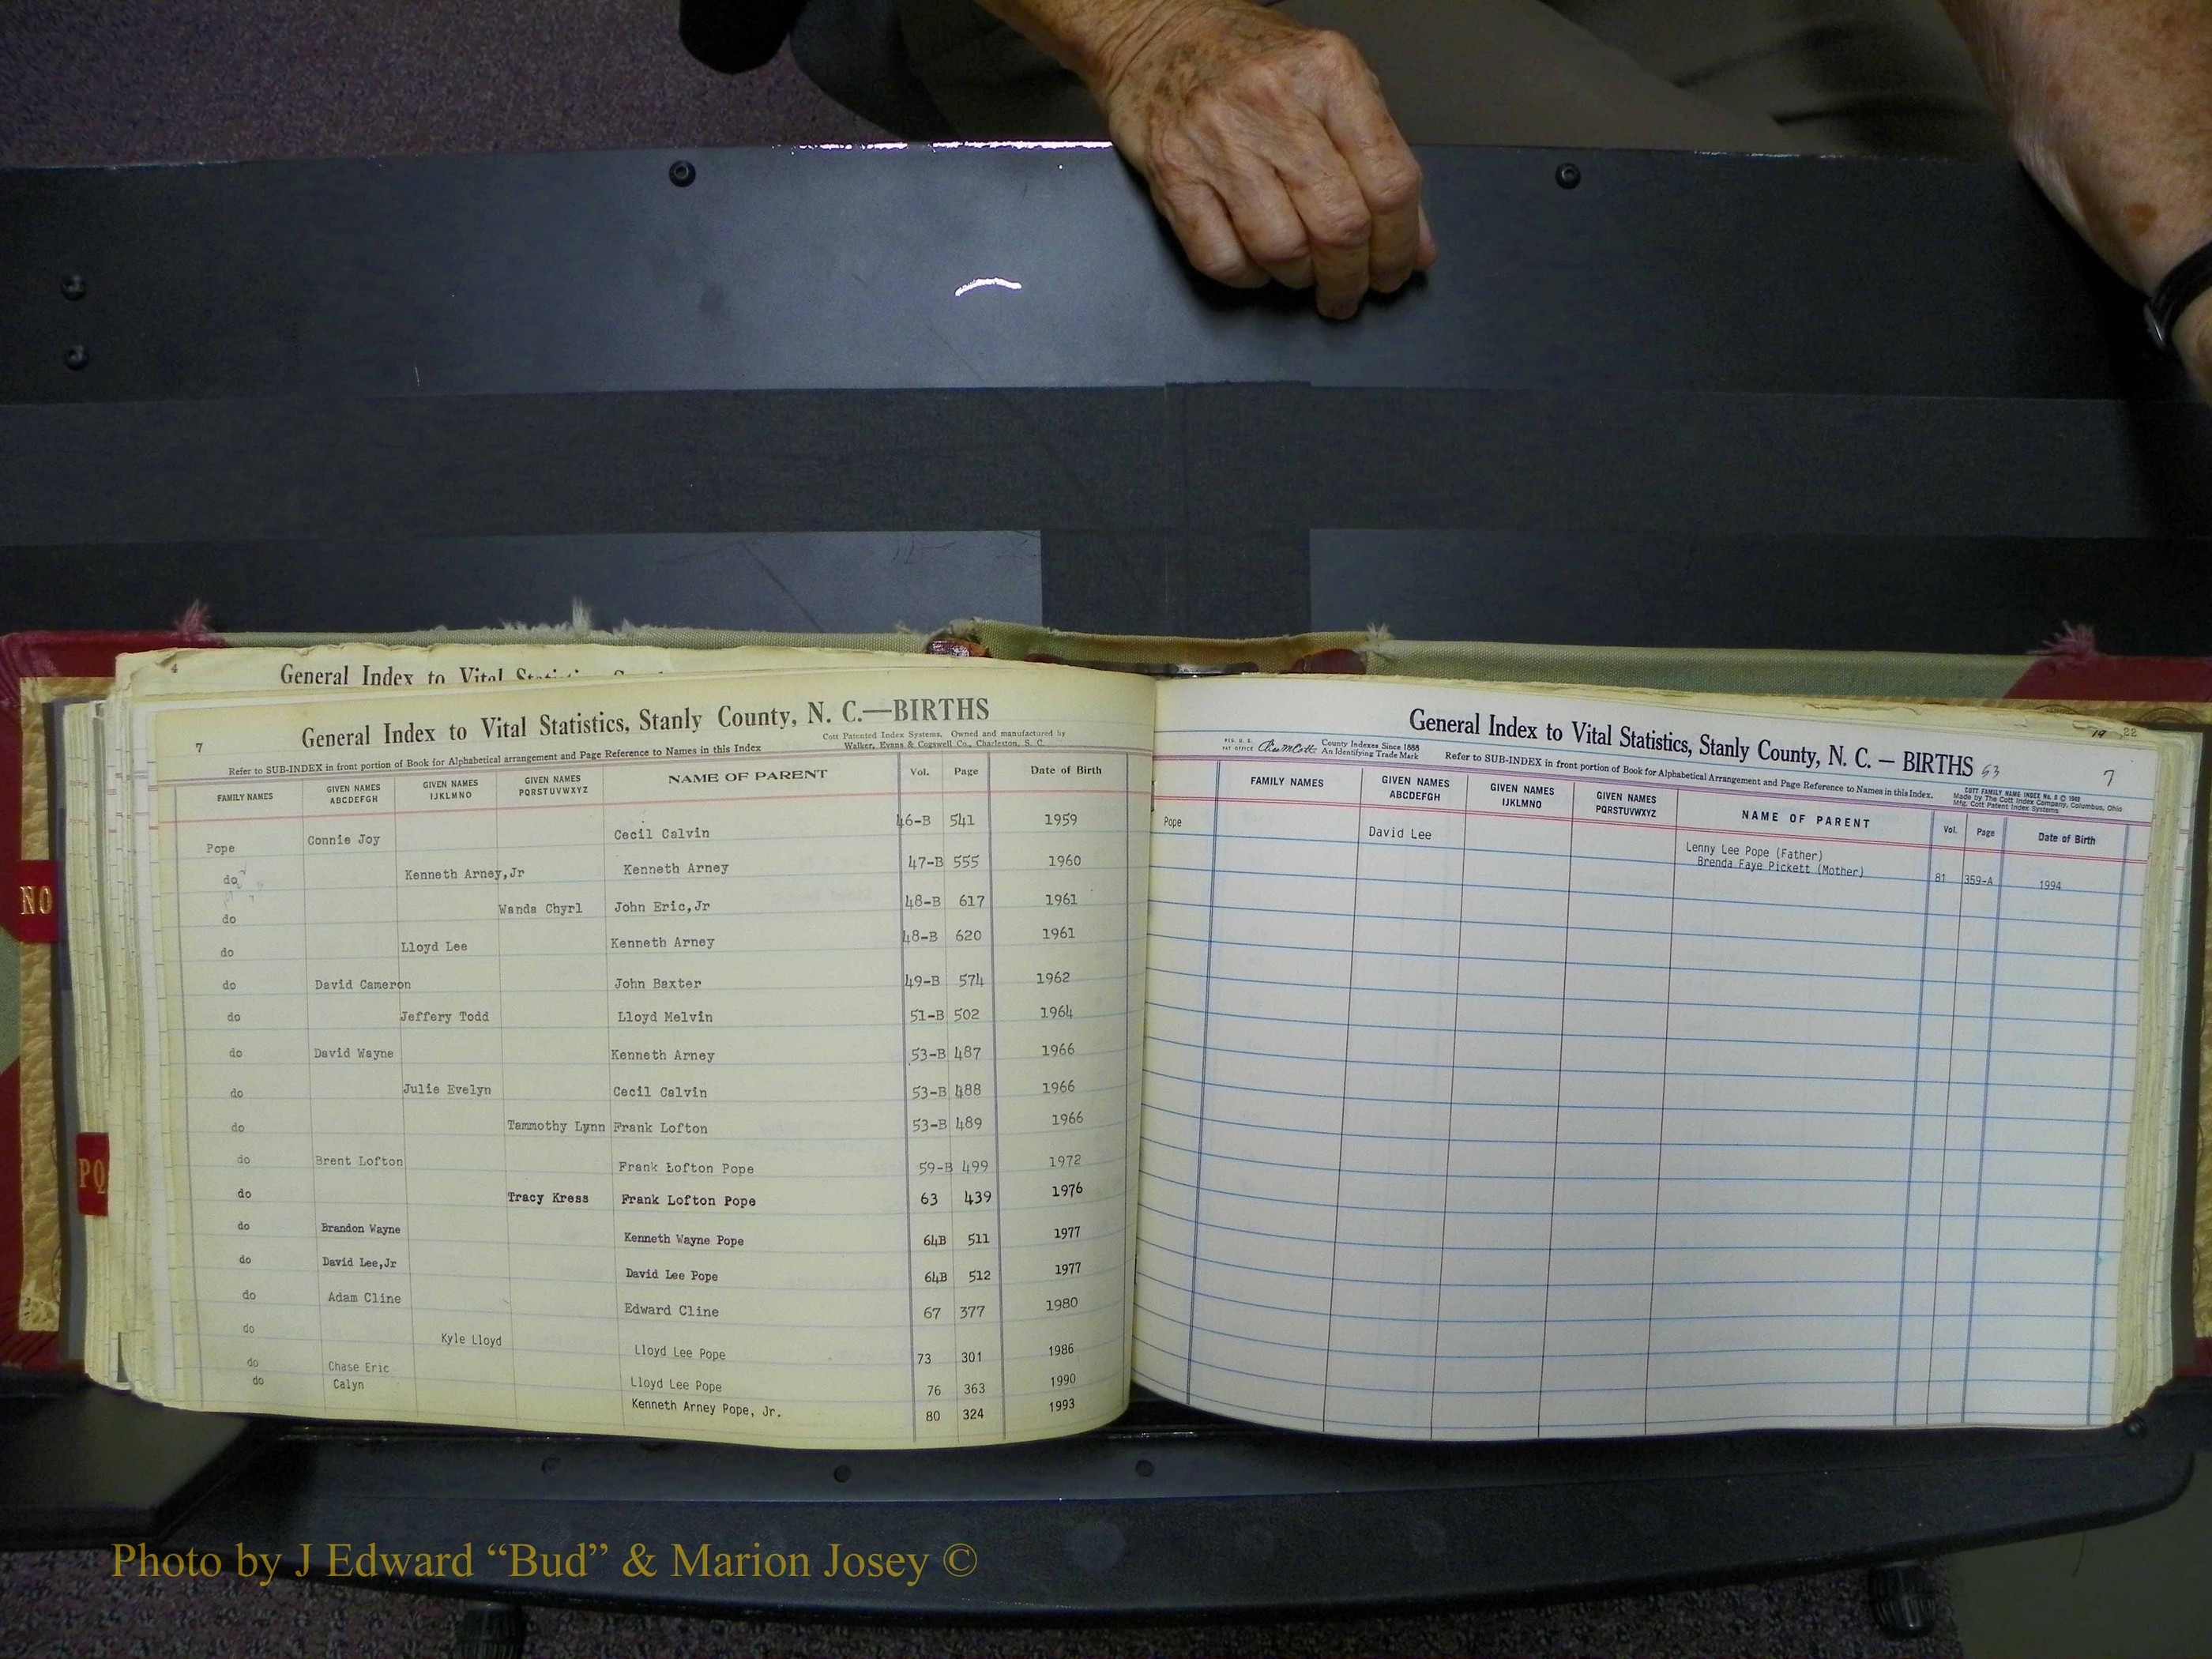 4
General Index to Vital
7
General Index to Vital Statistics, Stanly County, N. C.—BIRTHS
Cott Patented Index Systems. Owned and manufactured by
Walker, Evans & Cogswell Co., Charleston, S. C.
Refer to SUB-INDEX in front portion of Book for Alphabetical arrangement and Page Reference to Names in this Index
FAMILY NAMES GIVEN NAMES ABCDEFGH GIVEN NAMES IJKLMNO GIVEN NAMES PQRSTUVWXYZ NAME OF PARENT Vol. Page Date of Birth
Pope Connie Joy Cecil Calvin 46-B 541 1959
do Kenneth Arney,Jr Kenneth Arney 47-B 555 1960
do Wanda Chyrl John Eric,Jr 48-B 617 1961
do Lloyd Lee Kenneth Arney 48-B 620 1961
do David Cameron John Baxter 49-B 574 1962
do Jeffery Todd Lloyd Melvin 51-B 502 1964
do David Wayne Kenneth Arney 53-B 487 1966
do Julie Evelyn Cecil Calvin 53-B 488 1966
do Tammothy Lynn Frank Lofton 53-B 489 1966
do Brent Lofton Frank Lofton Pope 59-B 499 1972
do Tracy Kress Frank Lofton Pope 63 439 1976
do Brandon Wayne Kenneth Wayne Pope 64B 511 1977
do David Lee,Jr David Lee Pope 64B 512 1977
do Adam Cline Edward Cline 67 377 1980
do Kyle Lloyd Lloyd Lee Pope 73 301 1986
do Chase Eric Lloyd Lee Pope 76 363 1990
do Calyn Kenneth Arney Pope, Jr. 80 324 1993
NO
PQ
19 22
General Index to Vital Statistics, Stanly County, N. C. — BIRTHS 53
7
REG. U. S.
PAT OFFICE
County Indexes Since 1888
An Identifying Trade Mark
Refer to SUB-INDEX in front portion of Book for Alphabetical Arrangement and Page Reference to Names in this Index.
COTT FAMILY NAME INDEX No. 8 © 1949
Made by The Cott Index Company, Columbus, Ohio
Mfg. Cott Patent Index Systems
FAMILY NAMES GIVEN NAMES ABCDEFGH GIVEN NAMES IJKLMNO GIVEN NAMES PQRSTUVWXYZ NAME OF PARENT Vol. Page Date of Birth
Pope David Lee Lenny Lee Pope (Father)
Brenda Faye Pickett (Mother) 81 359-A 1994
Photo by J Edward “Bud” & Marion Josey ©